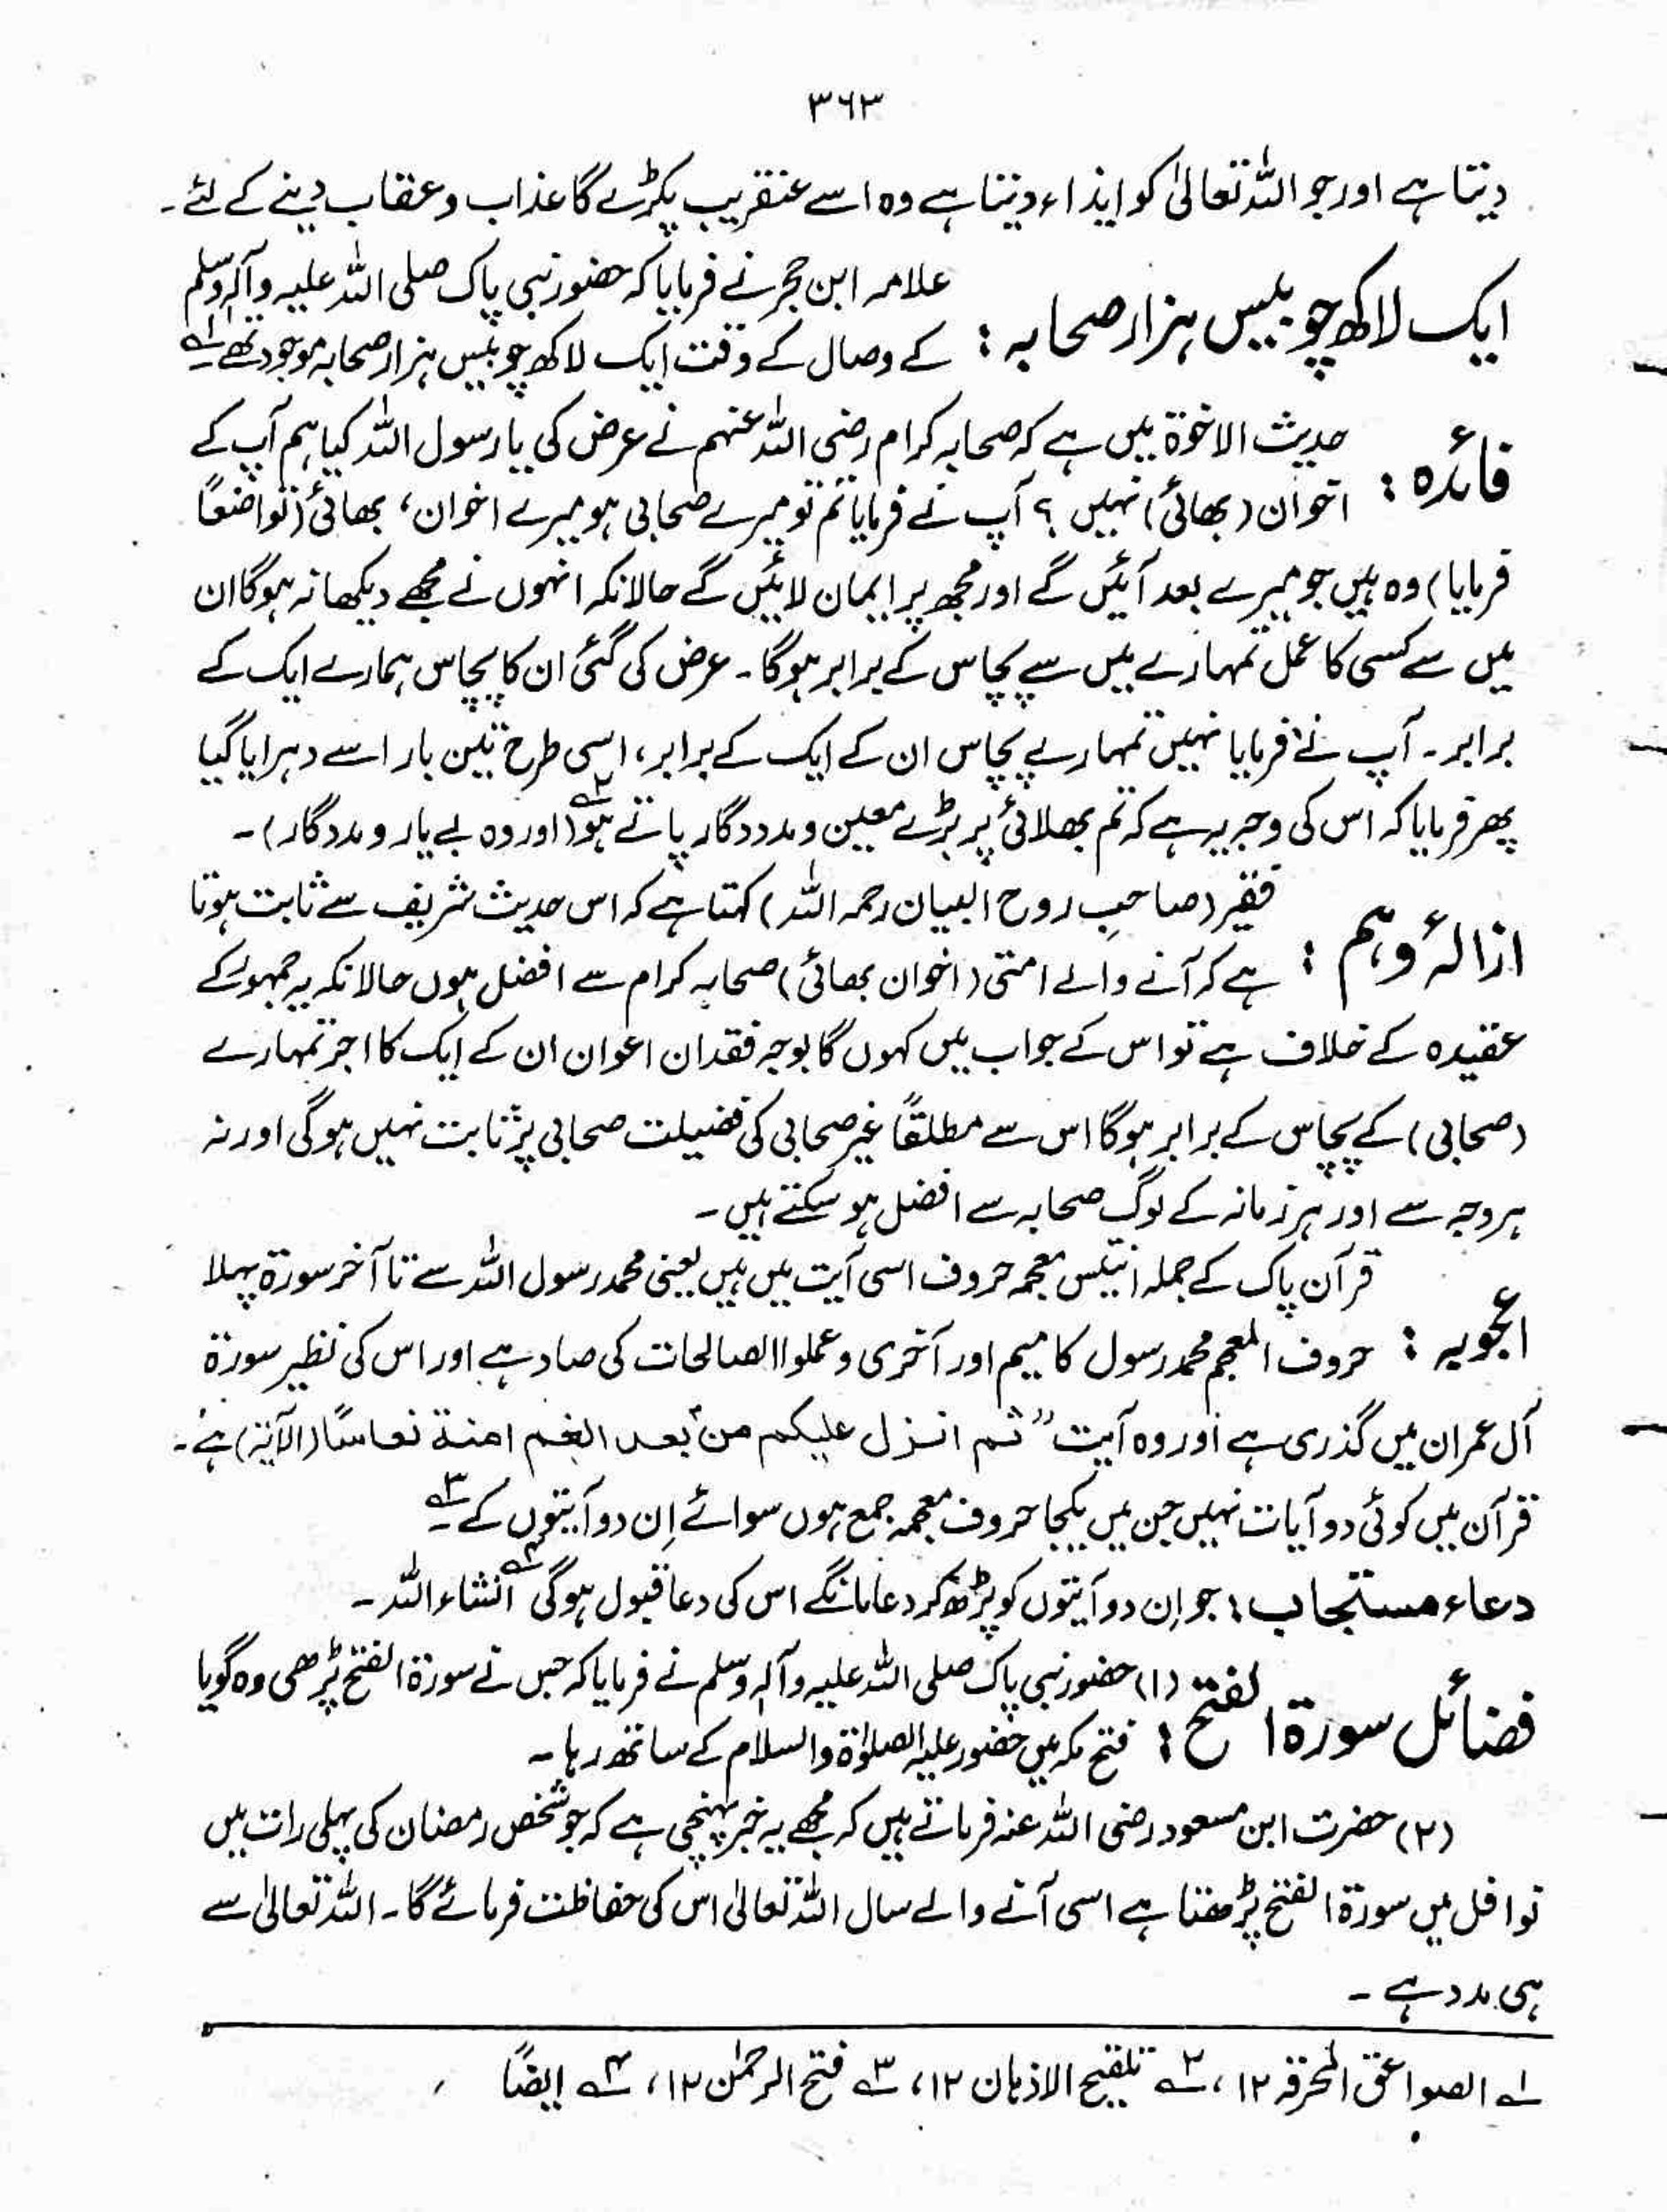 ۳۶۳
دیتا ہے اور جو اللہ تعالیٰ کو ایذاء دیتا ہے وہ اسے عنقریب پکڑے گا عذاب و عقاب دینے کے لئے ۔
ایک لاکھ چوبیس ہزار صحابہ : علامہ ابن حجر نے فرمایا کہ حضور نبی پاک صلی اللہ علیہ وآلہٖ وسلم
کے وصال کے وقت ایک لاکھ چوبیس ہزار صحابہ موجود تھے ۱ے
فائدہ : حدیث الاخوۃ میں ہے کہ صحابہ کرام رضی اللہ عنہم نے عرض کی یا رسول اللہ کیا ہم آپ کے
اخوان (بھائی) نہیں ؟ آپ نے فرمایا تم تو میرے صحابی ہو میرے اخوان ، بھائی (تواضعاً
فرمایا) وہ ہیں جو میرے بعد آئیں گے اور مجھ پر ایمان لائیں گے حالانکہ انہوں نے مجھے دیکھا نہ ہوگا ان
میں سے کسی کا عمل تمہارے میں سے پچاس کے برابر ہوگا ۔ عرض کی گئی ان کا پچاس ہمارے ایک کے
برابر ۔ آپ نے فرمایا نہیں تمہارے پچاس ان کے ایک کے برابر ، اسی طرح تین بار اسے دہرایا گیا
پھر فرمایا کہ اس کی وجہ یہ ہے کہ تم بھلائی پر بڑے معین و مددگار پاتے ہو ۲ے (اور وہ بے یار و مددگار) ۔
ازالۂ وہم : فقیر (صاحبِ روح البیان رحمہ اللہ) کہتا ہے کہ اس حدیث شریف سے ثابت ہوتا
ہے کہ آنے والے امتی (اخوان بھائی) صحابہ کرام سے افضل ہوں حالانکہ یہ جمہور کے
عقیدہ کے خلاف ہے تو اس کے جواب میں کہوں گا بوجہ فقدان اعوان ان کے ایک کا اجر تمہارے
(صحابی) کے پچاس کے برابر ہوگا اس سے مطلقاً غیر صحابی کی فضیلت صحابی پر ثابت نہیں ہوگی اور نہ
ہر وجہ سے اور ہر زمانہ کے لوگ صحابہ سے افضل ہو سکتے ہیں ۔
اعجوبہ : قرآن پاک کے جملہ انتیس معجمہ حروف اسی آیت میں ہیں یعنی محمد رسول اللہ سے تا آخر سورۃ پہلا
حروف المعجم محمد رسول کا میم اور آخری وعملوا الصالحات کی صاد ہے اور اس کی نظیر سورۃ
آل عمران میں گذری ہے اور وہ آیت ”ثم انزل علیکم من بعد الغم امنۃ نعاسًا (الآیۃ) ہے ۔
قرآن میں کوئی دو آیات نہیں جن میں یکجا حروف معجمہ جمع ہوں سوائے اِن دو آیتوں کے ۳ے
دعاء مستجاب : جو اِن دو آیتوں کو پڑھ کر دعا مانگے اس کی دعا قبول ہوگی ۴ے انشاء اللہ ۔
فضائل سورۃ الفتح : (۱) حضور نبی پاک صلی اللہ علیہ وآلہٖ وسلم نے فرمایا کہ جس نے سورۃ الفتح پڑھی وہ گویا
فتح مکہ میں حضور علیہ الصلوٰۃ والسلام کے ساتھ رہا ۔
(۲) حضرت ابن مسعود رضی اللہ عنہ فرماتے ہیں کہ مجھے یہ خبر پہنچی ہے کہ جو شخص رمضان کی پہلی رات میں
نوافل میں سورۃ الفتح پڑھتا ہے اسی آنے والے سال اللہ تعالیٰ اس کی حفاظت فرمائے گا ۔ اللہ تعالیٰ سے
ہی مدد ہے ۔
۱ے الصواعق المحرقہ ۱۲ ، ۲ے تلقیح الاذہان ۱۲ ، ۳ے فتح الرحمٰن ۱۲ ، ۴ے ایضاً